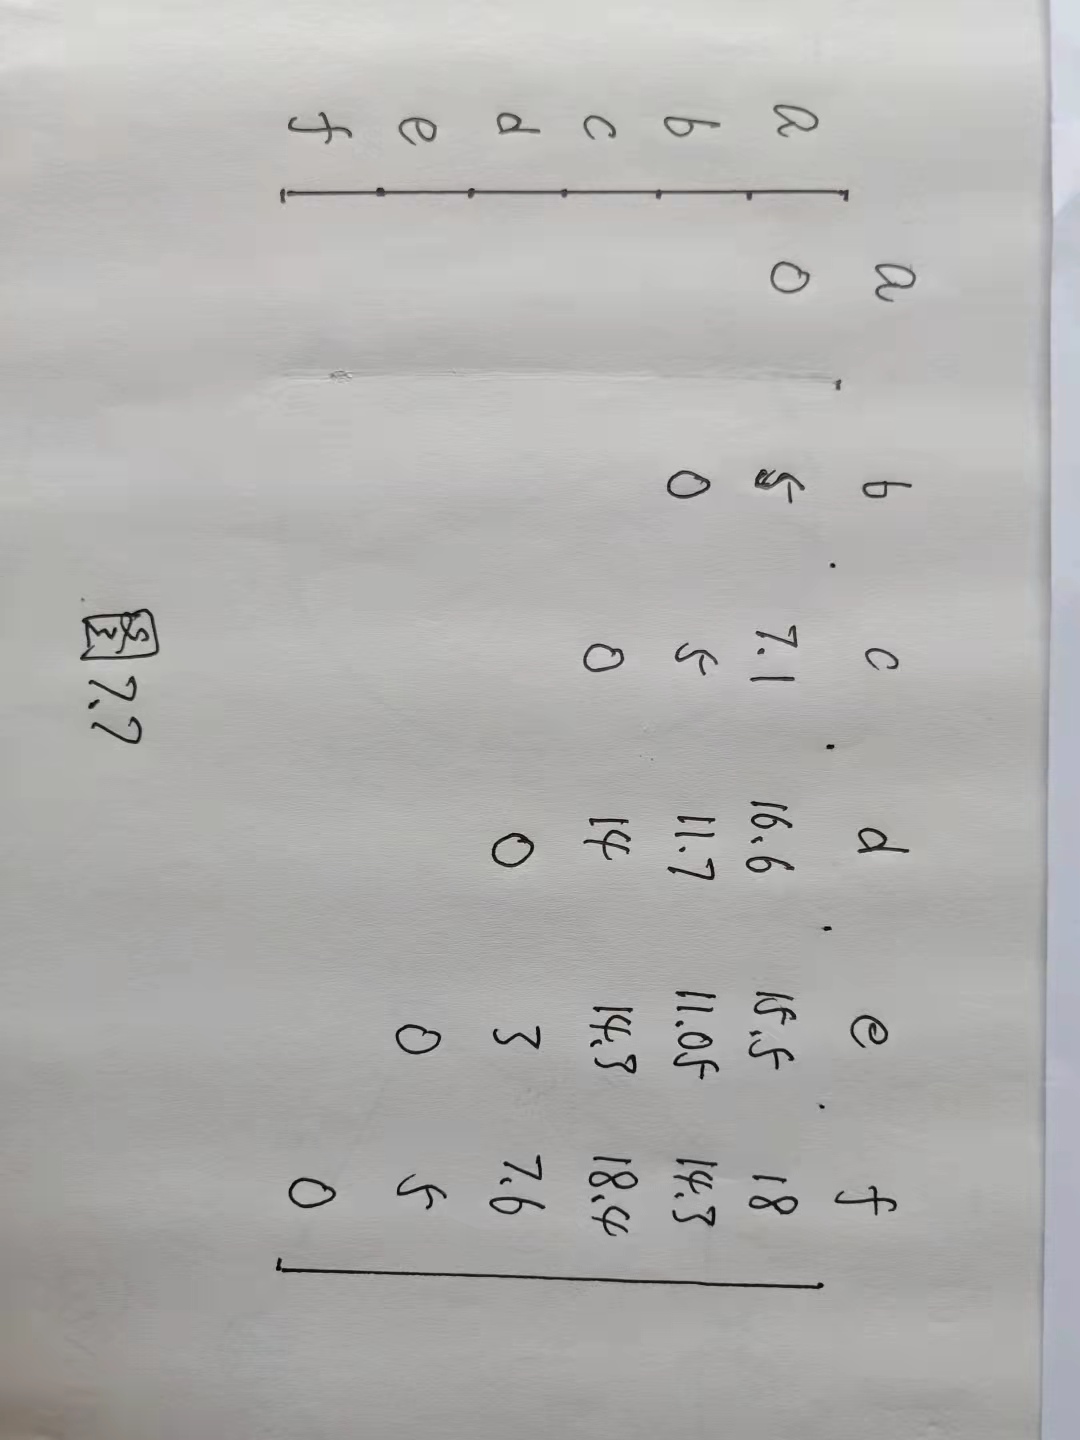 a b c d e f
a 0 5 7.1 16.6 15.5 18
b 0 5 11.7 11.05 14.3
c 0 14 14.3 18.4
d 0 3 7.6
e 0 5
f 0
图 7.7